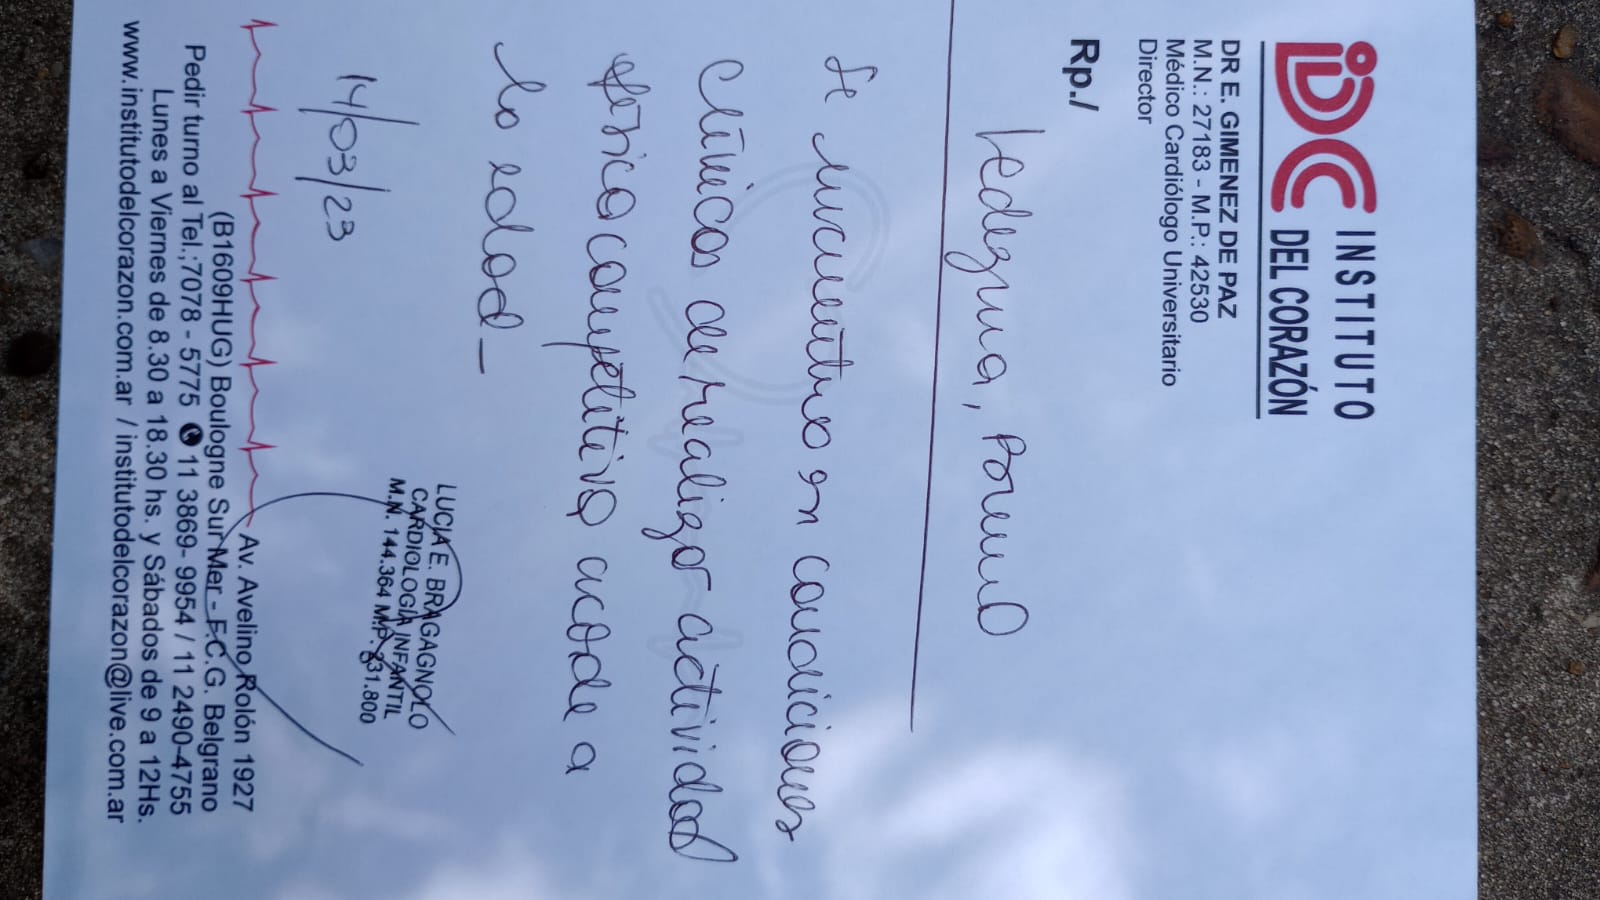 IDC INSTITUTO
DEL CORAZÓN
DR E. GIMENEZ DE PAZ
M.N.: 27183 - M.P.: 42530
Médico Cardiólogo Universitario
Director
Rp./
Ledezma,
Se encuentra en condiciones
clínicas de realizar actividad
física competitiva acorde a
la edad_
14/03/23
LUCIA E. BRAGAGNOLO
CARDIOLOGÍA INFANTIL
M.N. 144.364 M.P. 331.800
Av. Avelino Rolón 1927
(B1609HUG) Boulogne Sur Mer - F.C.G. Belgrano
Pedir turno al Tel.:7078 - 5775 11 3869- 9954 / 11 2490-4755
Lunes a Viernes de 8.30 a 18.30 hs. y Sábados de 9 a 12Hs.
www.institutodelcorazon.com.ar / institutodelcorazon@live.com.ar